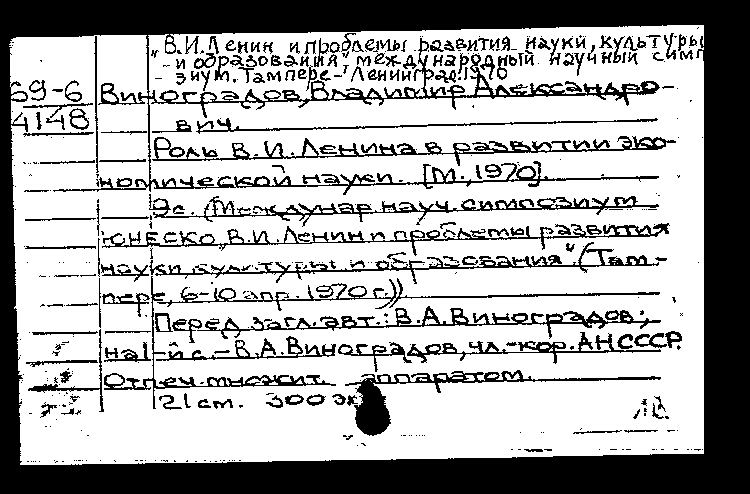 „В.И.Ленин и проблемы развития науки, культуры
и образования", международный научный симп
зиум. Тампере - Ленинград. 1970
69-6 Виноградов, Владимир Александро-
4148 вич.
Роль В.И.Ленина в развитии эко-
номической науки. [М., 1970].
9с. (Междунар. науч. симпозиум
ЮНЕСКО „В.И.Ленин и проблемы развития
науки, культуры и образования" (Там-
пере, 6-10 апр. 1970 г.))
Перед загл. авт.: В.А.Виноградов;
на 1-й с. - В.А.Виноградов, чл.-кор. АН СССР.
Отпеч. множит. аппаратом.
21 см. 300 эк